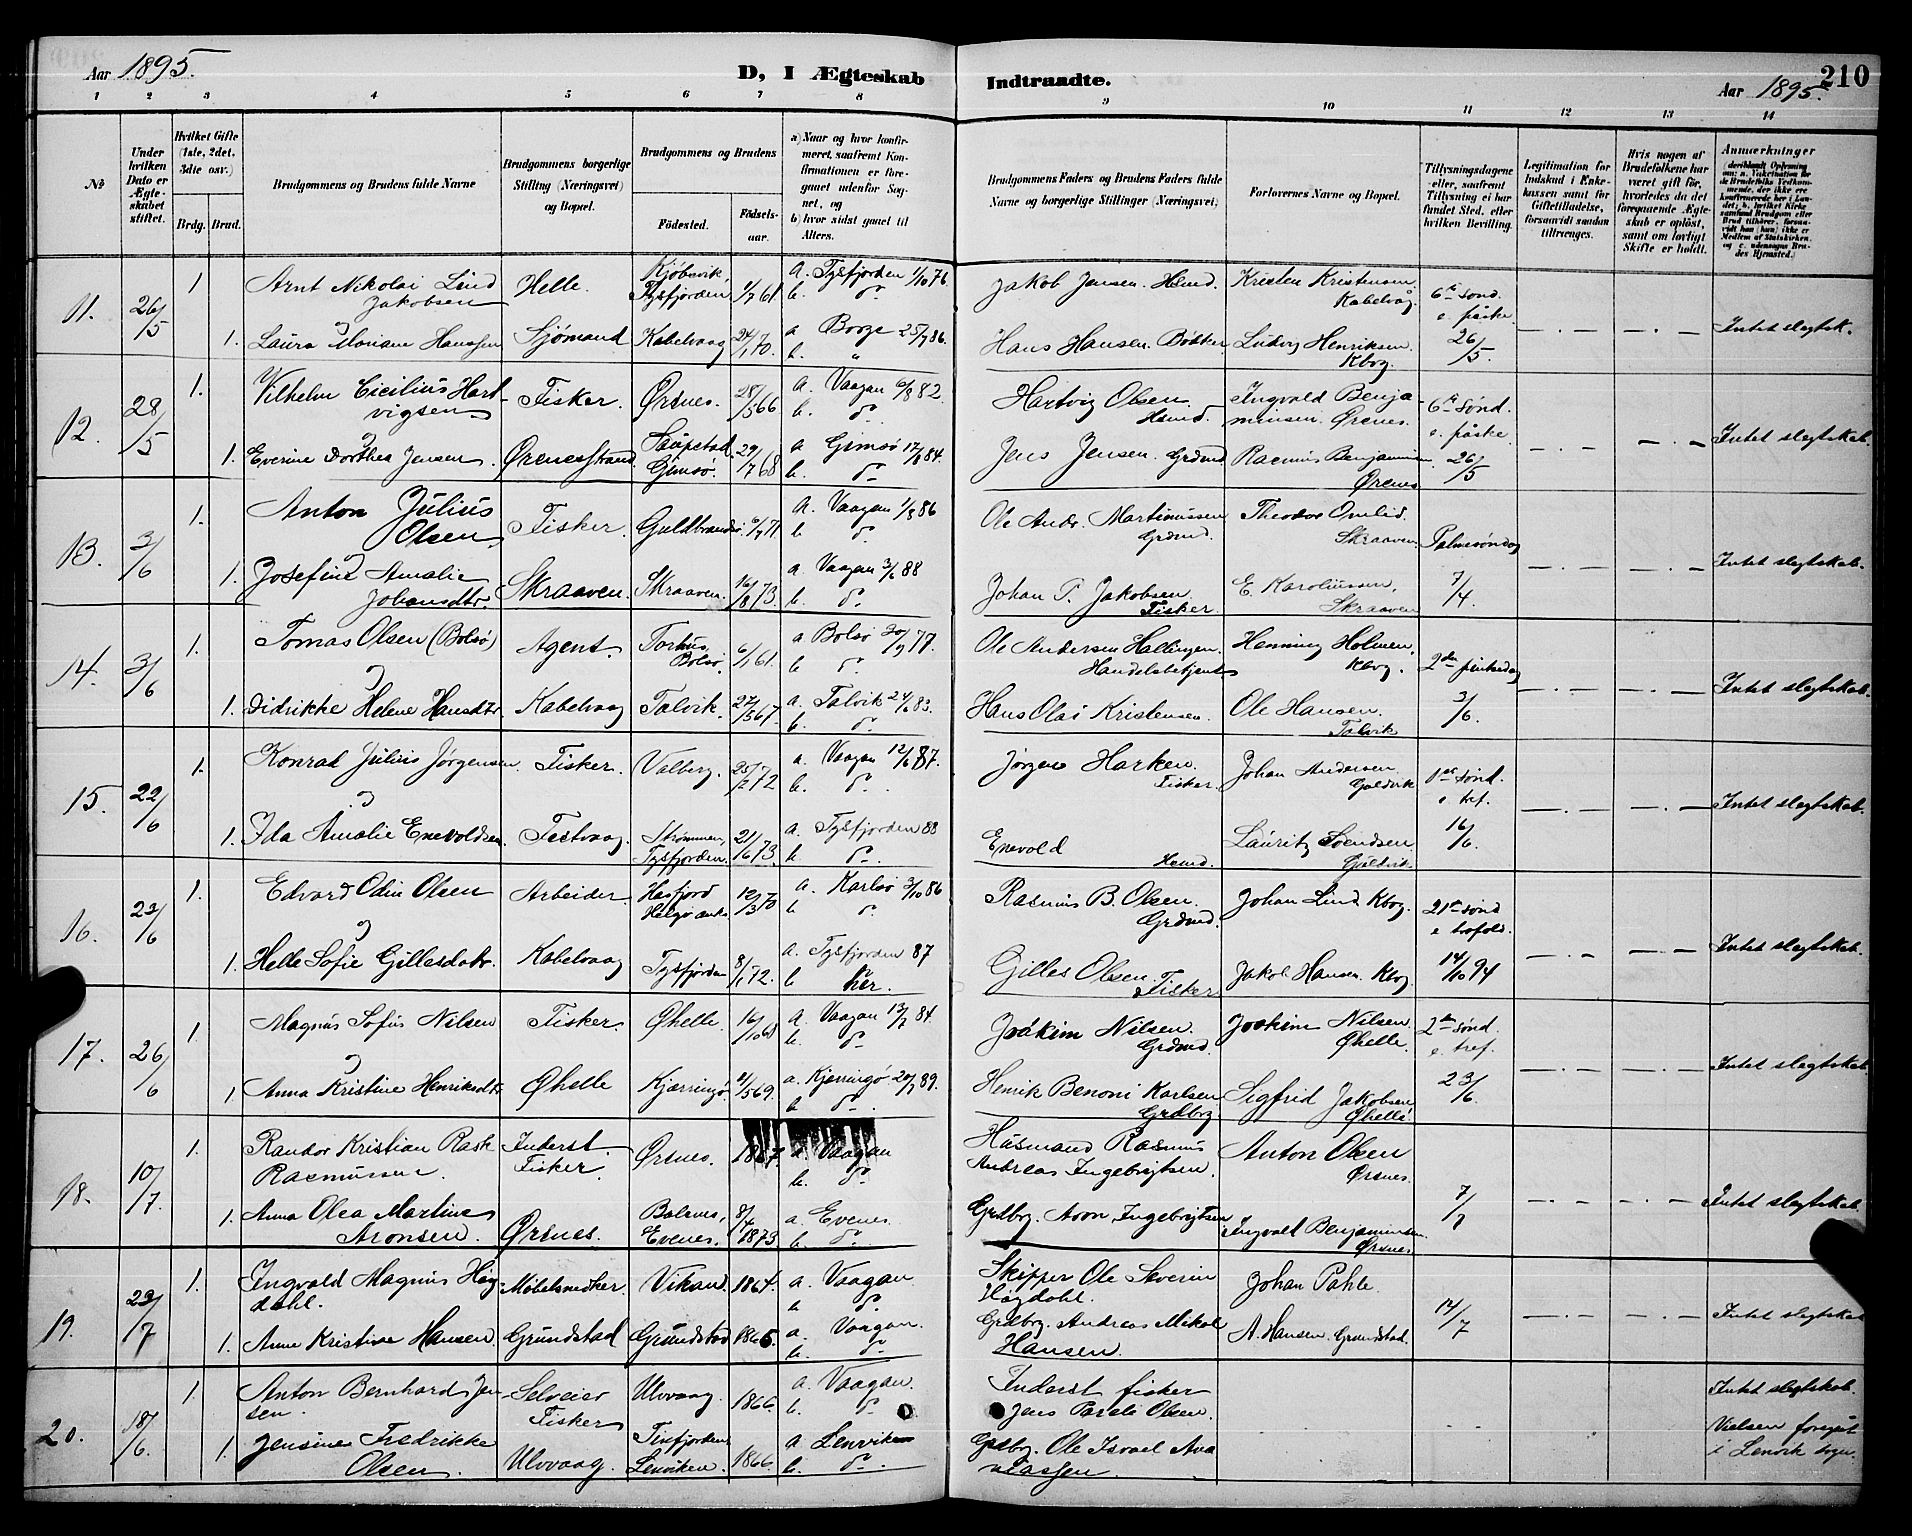 Aar 1895.
D, I Ægteskab Indtraadte.
Aar 1895.
210
1 2 3 4 5 6 7 8 9 10 11 12 13 14
No
Under hvilken Dato er Ægteskabet stiftet.
Hvilket Gifte (1ste, 2det, 3die osv.)
Brdg. Brud.
Brudgommens og Brudens fulde Navne
Brudgommens borgerlige Stilling (Næringsvei) og Bopæl.
Brudgommens og Brudens
Fødested.
Fødselsaar.
a) Naar og hvor konfirmeret, saafremt Konfirmationen er foregaaet udenfor Sognet, og
b) hvor sidst gaaet til Alters.
Brudgommens Faders og Brudens Faders fulde Navne og borgerlige Stillinger (Næringsvei)
Forlovernes Navne og Bopæl.
Tillysningsdagene eller, saafremt Tillysning ei har fundet Sted, efter hvilken Bevilling.
Legitimation for Indskud i Enkekassen samt for Giftetilladelse, forsaavidt saadan tiltrænges.
Hvis nogen af Brudefolkene har været gift før, hvorledes da det foregaaende Ægteskab er opløst, samt om lovligt Skifte er holdt.
Anmærkninger
11. 26/5 1. Arnt Nikolai Lind Jakobsen Helle. Kjøbsvik, Tysfjorden 1/7 61 a. Tysfjorden 1/10 76. b. do Jakob Jensen. Hsmd. Kristen Kristensen Kabelvåg 6te sönd. e. påske
& 1. Laura Mariane Hanssen Sjømand Kabelvaag 24/1 70. a Borge 25/7 86. b. " Hans Hansen. Bøkker Ludvg Henriksen. Kbvg. 26/5. — . — — . — Intet slegtsk.
12. 28/5 1. Vilhelm Cicilius Hartvigsen Fisker. Ørsnes. 28/5 66 a. Vaagan 6/8 82. b. do Hartvig Olsen Hsmd. Ingvald Benjaminsen Ørsnes. 6te sönd. e. påske
& 1. Everine Dorthea Jensen. Ørsnesstrand Saupstad Gimsø. 29/7 68 a Gimsø 17/8 84. b. do Jens Jensen. Grdmd Rasmus Benjaminsen Ørsnes 26/5 — . — — . — Intet slegtskab.
13. 3/6 1. Anton Julius Olsen Fisker. Guldbrandsø. 6/7 71 a. Vaagan 1/8 86 b. do Ole Andr. Martinussen Grdmd. Theodor Ovelid. Skraaven Palmesöndag
& 1. Josefine Amalie Johansdtr. Skraaven. Skraaven. 16/8 73. a. Vaagan 3/6 88 b. do Johan P. Jakobsen Fisker. E. Karoliussen, Skraaven 7/4. — . — — . — Intet slegtskab.
14. 3/6 1. Tomas Olsen (Bolsø) Agent. Torhus, Bolsø. 6/1 61. a Bolsø 30/9 77. b. do Ole Andersen Hallingen. Handelsbetjent Henning Holmen. Kbvg. 2den pintsedag
& 1. Didrikke Helene Hansdtr. Kabelvaag Talvik. 27/5 67. a. Talvik 24/6 83. b. do Hans Olai Kristensen. Ole Hansen. Talvik 3/6. — . — — . — Intet slegtskab.
15. 22/6 1. Konrad Julius Jørgensen Fisker. Valberg. 25/2 72 a. Vaagan 12/6 87. b. do Jørgen Harken. Fisker. Johan Andersen Guldvik 1ste sönd. e tref.
& 1. Ida Amalie Enevoldsen Festvaag Strømmen, Tysfjorden. 21/6 73. a. Tysfjorden 88 b. do Enevold Hsmd. Lauritz Svendsen Guldvik 16/6. — . — — . — Intet slegtskab.
16. 23/6 1. Edvard Odin Olsen Arbeider. Hesfjord Helgø anks 12/3 70 a. Karlsø 3/10 86 b. do Rasmus B. Olsen. Grdmd. Johan Lind Kbvg. 21de sönd e trefold.
& 1. Helle Sofie Gillesdatr. Kabelvaag Tysfjorden 8/1 72. a. Tysfjorden 87 b her. Gilles Olsen. Fisker Jakob Hansen Kbvg 14/10 94 — . — — . — Intet slegtskab.
17. 26/6 1. Magnus Sofus Nilsen Fisker Øhelle. 16/10 68 a. Vaagan 13/7 84. b. do Joakim Nilsen. Grdmd. Joakim Nilsen Øhelle. 2den sönd. e. tref.
& 1. Anna Kristine Henriksdtr. Øhelle Kjærringø. 21/5 69. a. Kjærringø 20/7 89. b do Henrik Benoni Karlsen Grdbvg. Sigfrid Jakobsen Øhelle. 23/6. — . — — . — Intet slegtskab.
18. 10/7. 1. Randor Kristian Rask Rasmussen. Inderst. Fisker. Ørsnes. 1867. a Vaagan b. do Husmand Rasmus Andreas Ingebrigtsen. Anton Olsen Ørsnes.
1. Anna Olea Martine Aronsen. Ørsnes. Balsnes, Evenes. 8/4 1873 a. Evenes. b. do Grdbvg. Aron Ingebrigtsen Ingvald Benjaminsen. Ørsnes 7/7 — . — — . — Intet slegtskab.
19. 23/7 1. Ingvald Magnus Høgdahl. Møbelsnedker Vikan. 1864. a. Vaagan b do Skipper Ole Severin Høgdahl. Johan Pahle.
1. Anne Kristine Hansen. Grundstad Grundstad 1865. a. Vaagan. b. do Grdbvg. Andreas Mikal Hansen. A. Hansen. Grundstad. 14/7 — . — — . — Intet slegtskab
20. 18/6. 1. Anton Bernhard Jensen. Selveier Fisker Ulvvaag. 1866. a. Vaagan. b. do Inderst fisker Jens Pareli Olsen. Intet slegtskab.
1. Jensine Fredrikke Olsen. Ulvvaag. Tysfjorden Lenviken. 1866. a Lenviken b. do Grdbvg. Ole Israel Ananiassen. Vielsen foregået i Lenvik sogn.